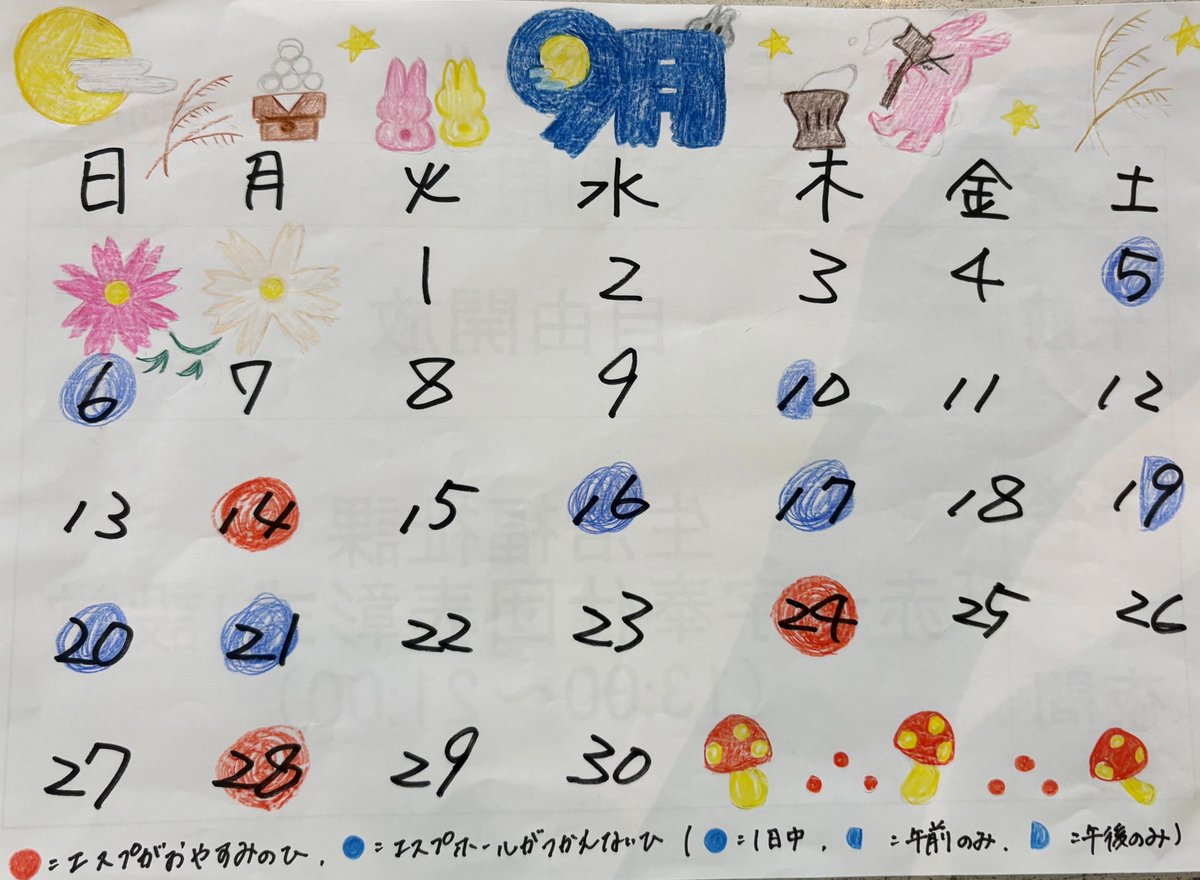 9月
日 月 火 水 木 金 土
1 2 3 4 5
6 7 8 9 10 11 12
13 14 15 16 17 18 19
20 21 22 23 24 25 26
27 28 29 30
=エスプがおやすみのひ、 =エスプホールがつかえないひ ( =1日中、 =午前のみ、 =午後のみ)